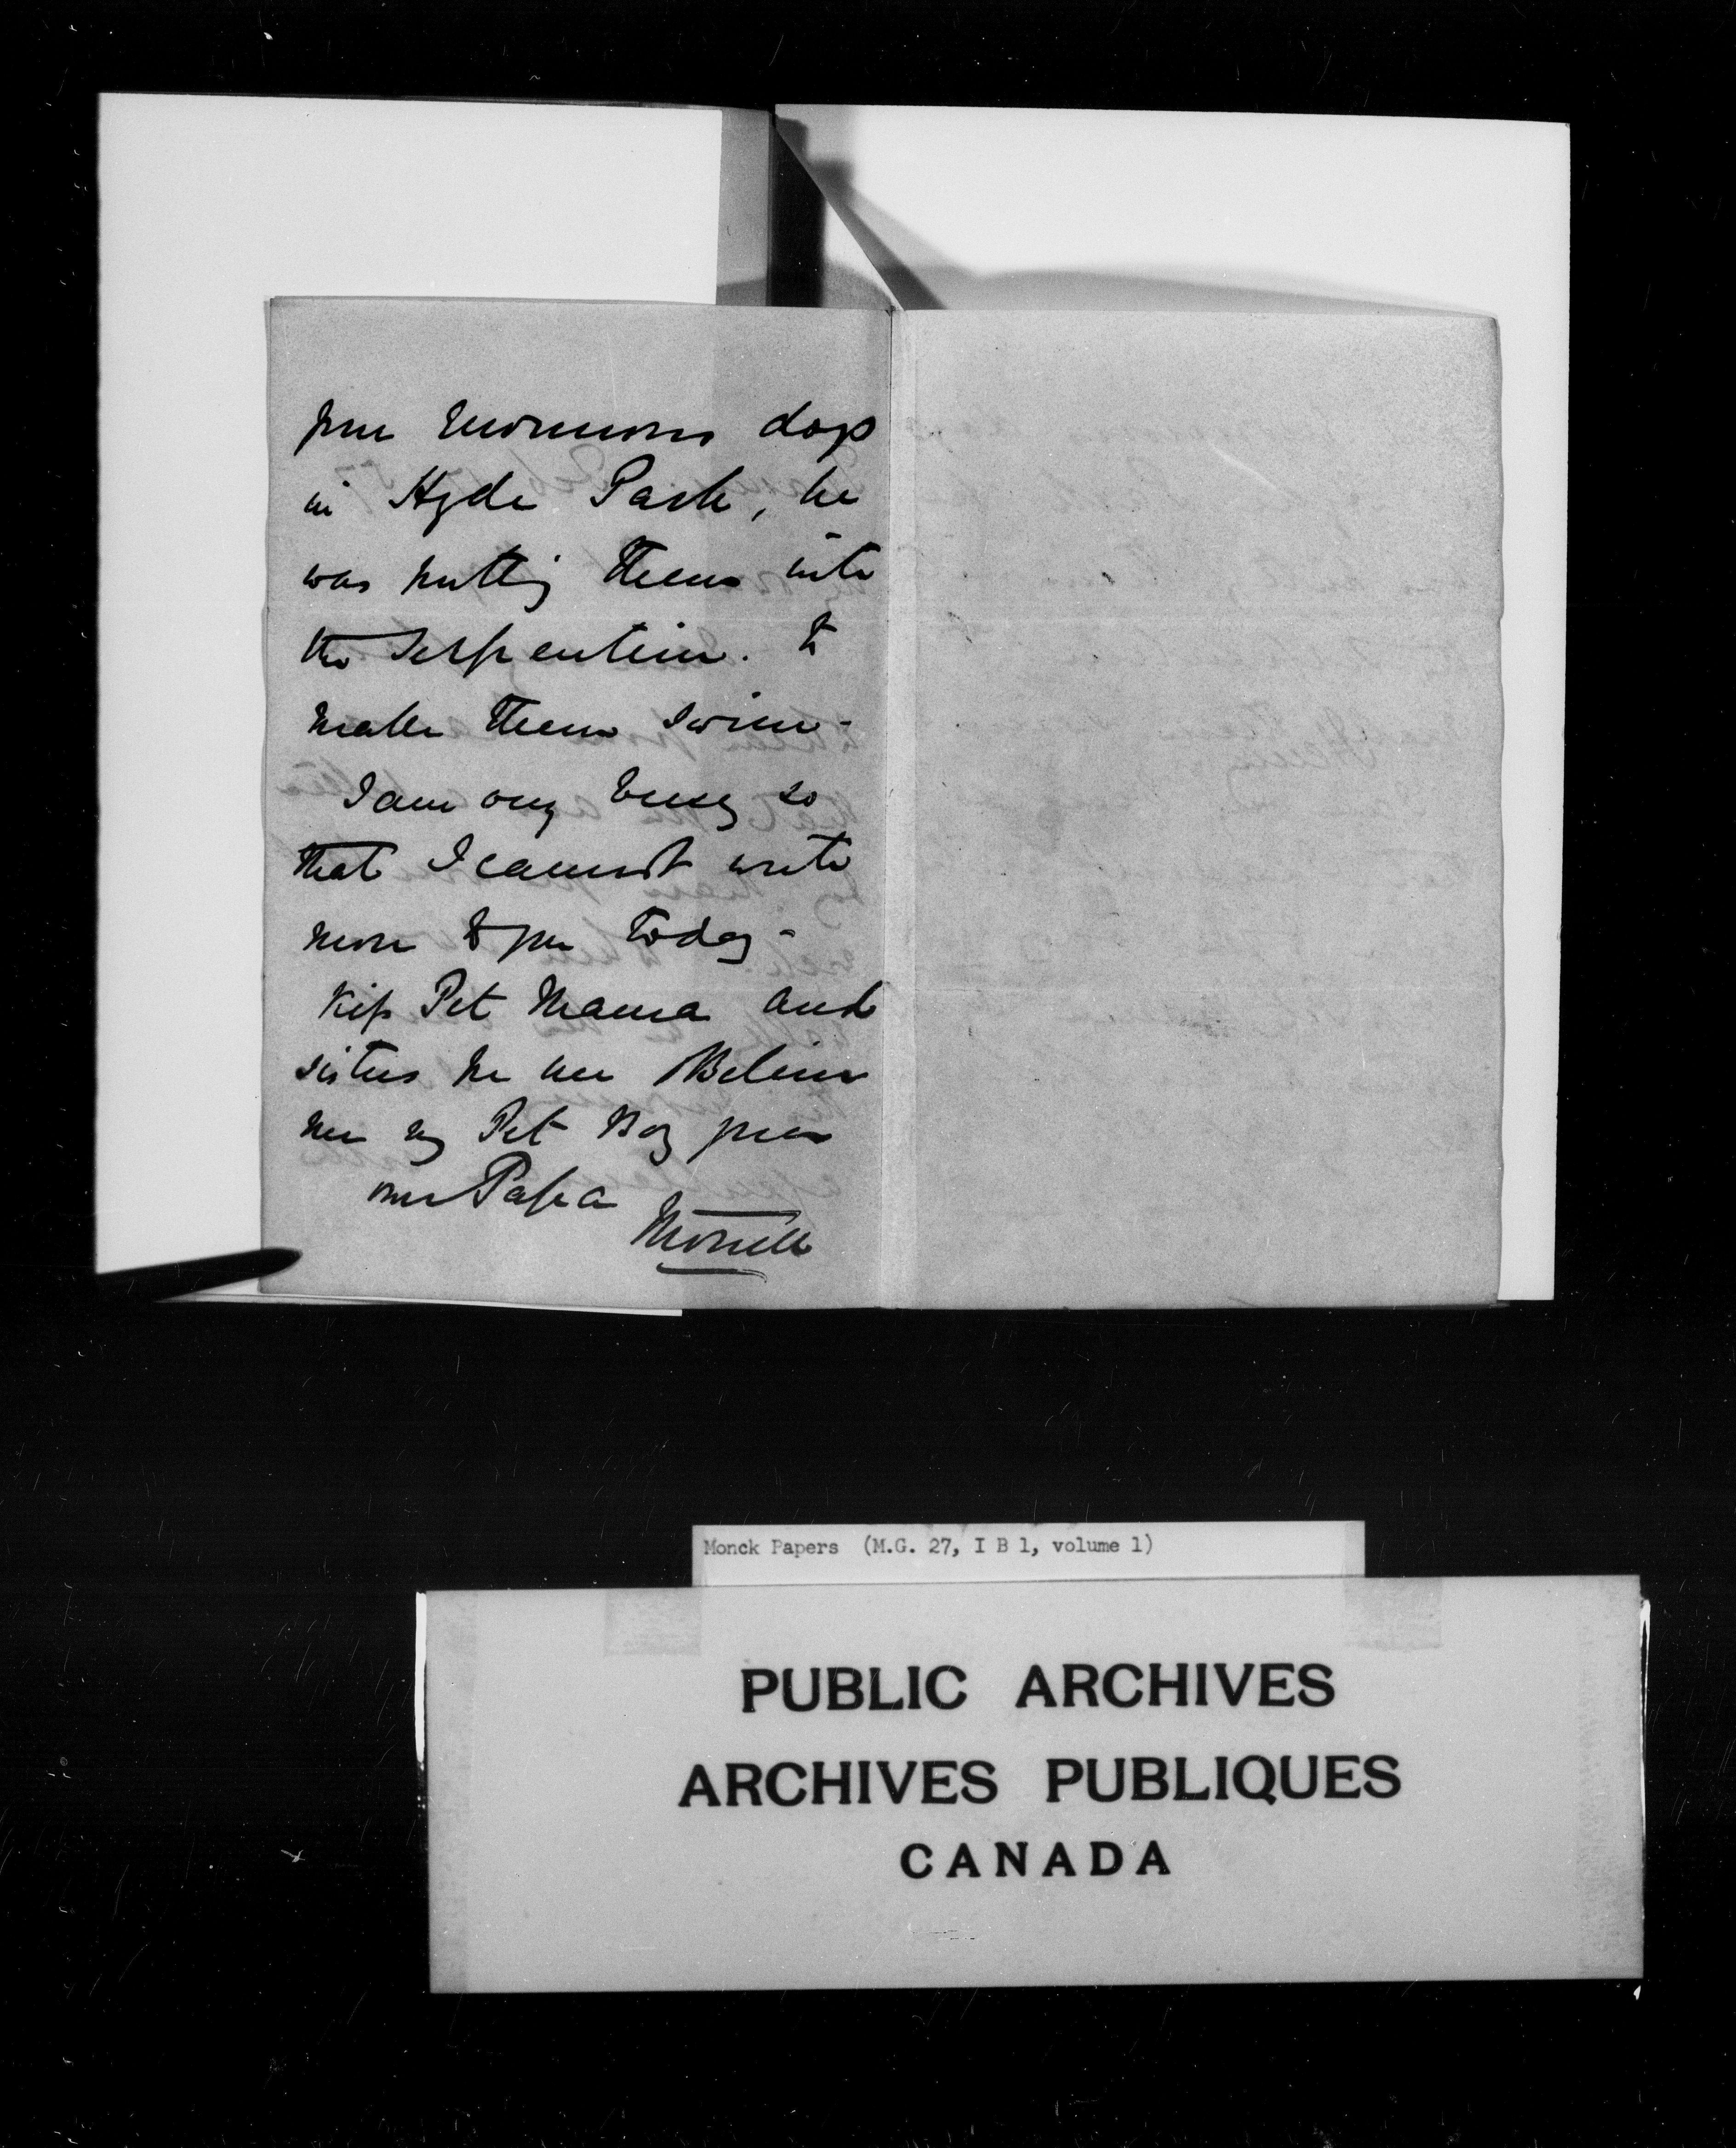 four enormous dogs
in Hyde Park, he
was putting them into
the Serpentine. to
make them swim -
I am very busy so
that I cannot write
more to you today -
Kiss Pet Mama and
sisters for me Believe
me my Pet Boy your
own Papa
Monck
Monck Papers (M.G. 27, I B 1, volume 1)
PUBLIC ARCHIVES
ARCHIVES PUBLIQUES
CANADA